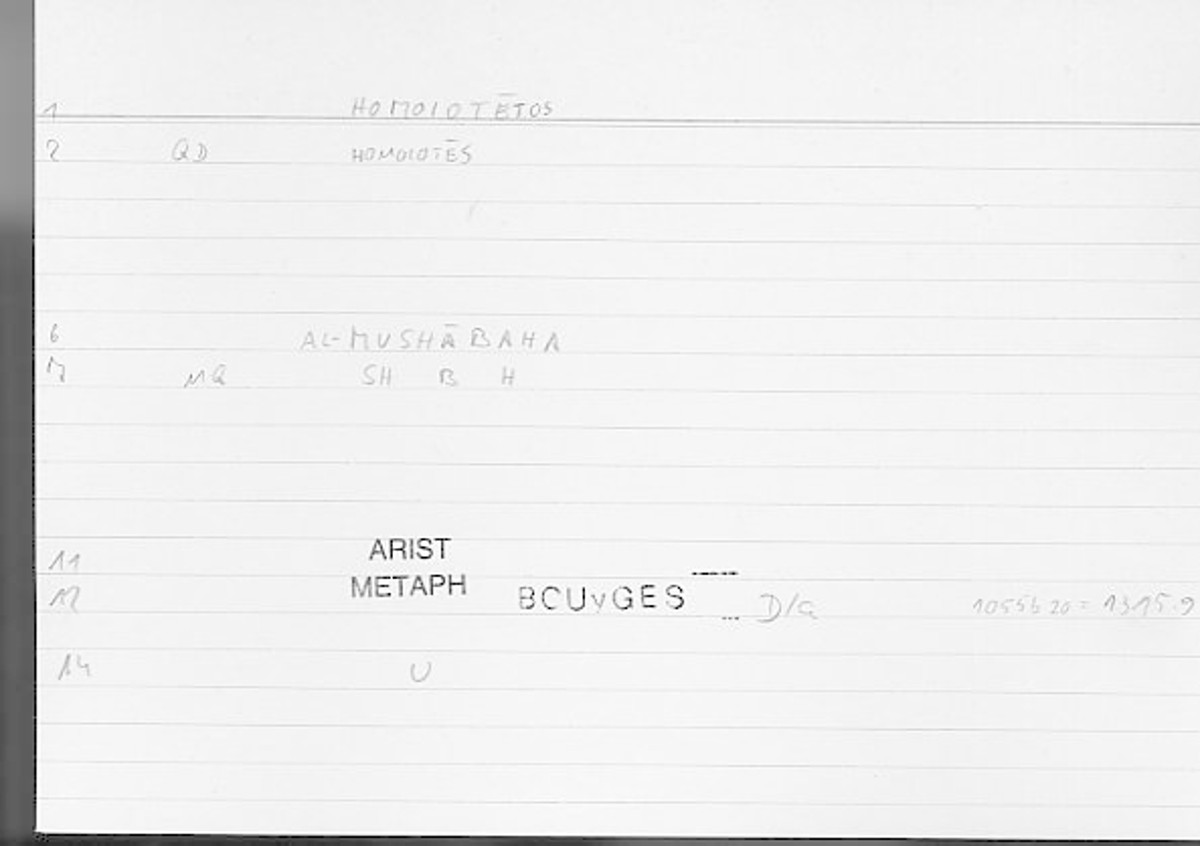 1 HOMOIOTĒTOS
2 QD HOMOIOTĒS
6 AL-MUSHĀBAHA
7 MQ SH B H
11 ARIST
12 METAPH BOUyGES D/a 1055b 20 = 1315.9
14 U